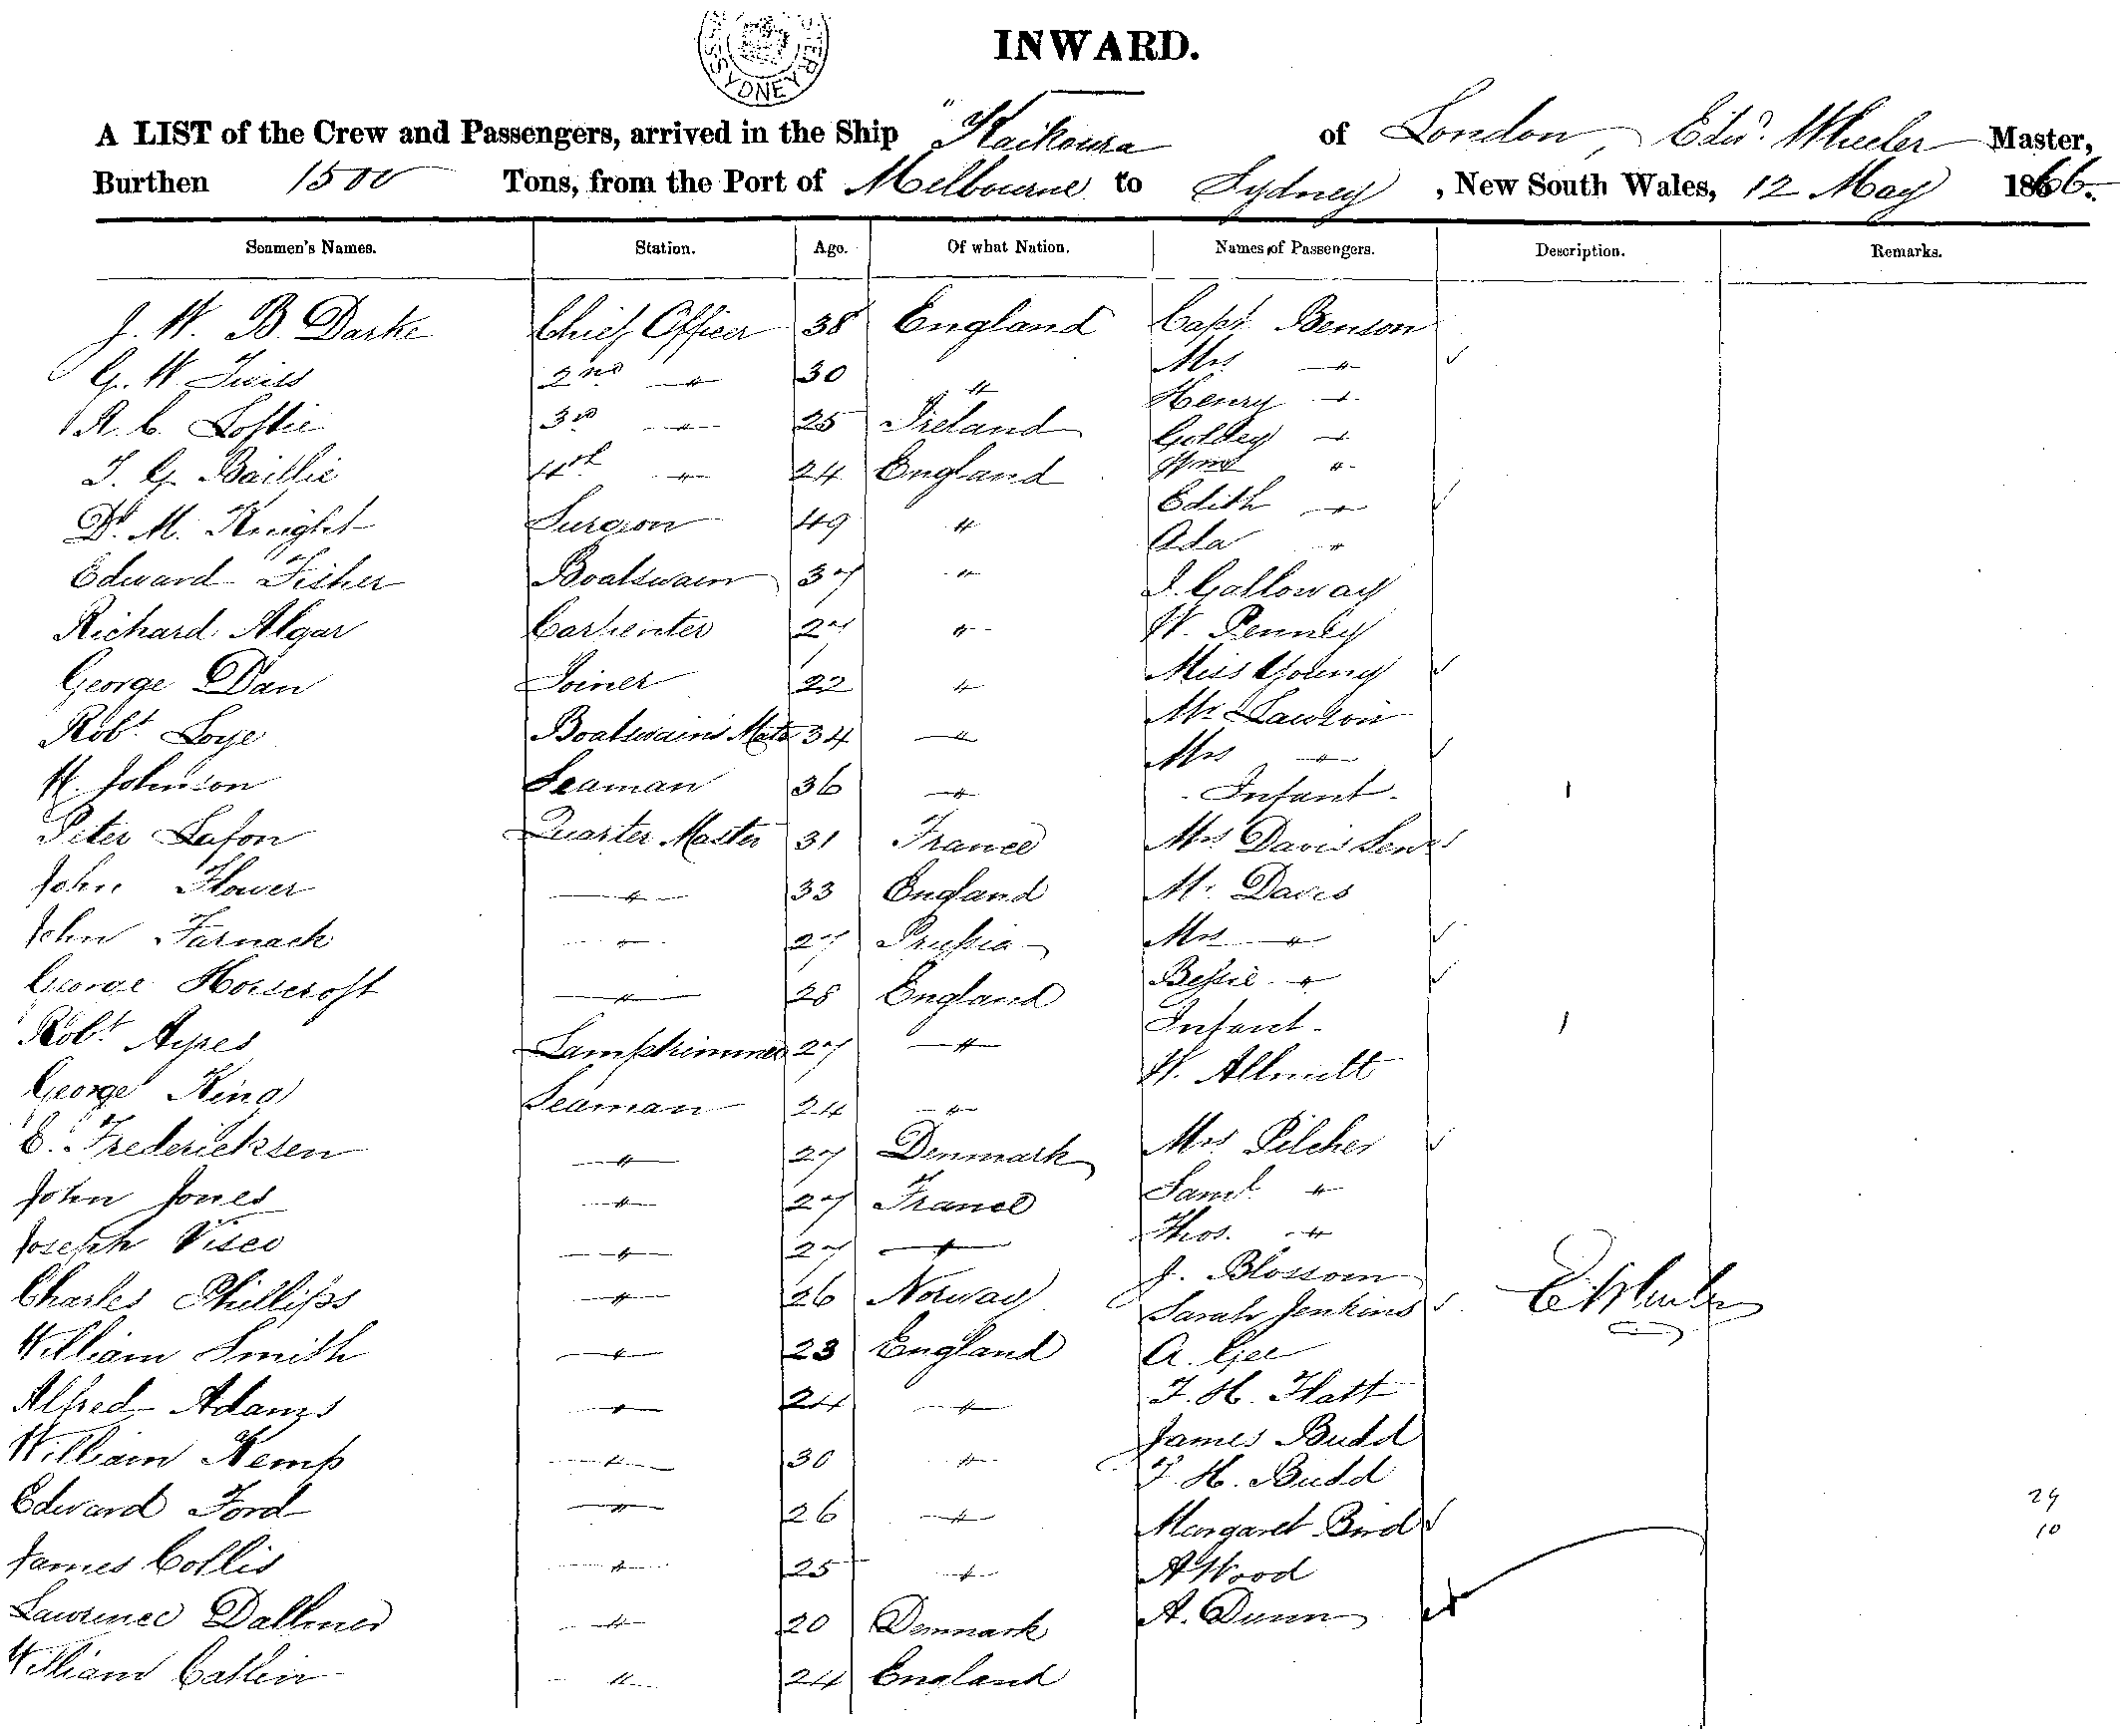 INWARD.
SYDNEY
A LIST of the Crew and Passengers, arrived in the Ship "Kaikoura of London, Edwd. Wheeler Master,
Burthen 1500 Tons, from the Port of Melbourne to Sydney, New South Wales, 12 May 1866.
Seamen's Names. Station. Age. Of what Nation. Names of Passengers. Description. Remarks.
J. W. B. Darke Chief Officer 38 England Capt Benson
G. W. Twiss 2nd " 30 " Mrs "
Henry "
R. C. Loftie 3rd " 25 Ireland Goldey "
T. G. Baillie 4th " 24 England "
Edith "
Dr. M. Knight Surgeon 49 " Ada "
Edward Fisher Boatswain 37 " J. Galloway
Richard Algar Carpenter 27 " W. Penney
George Dan Joiner 22 " Miss Young
Robt Loye Boatswain's Mate 34 " Mr Lawson
Mrs "
H. Johnson Seaman 36 " Infant 1
Peter Lafon Quarter Master 31 France Mrs Davis Senr
John Flower " 33 England Mr. Davis
John Farnack " 27 Prussia Mrs "
George Horscroft " 28 England Bessie "
Infant 1
Robt Ayres Lamptrimmer 27 " W. Allnutt
George King Seaman 24 "
C. Fredericksen " 27 Denmark Mrs Pilcher
John Jones " 27 France Saml "
Joseph Visco " 27 " Thos. "
J. Blossom
Charles Phillips " 26 Norway Sarah Jenkins E Wheeler
William Smith " 23 England A. Gee
Alfred Adams " 24 " F. H. Hatt
James Budd
William Kemp " 30 " F. H. Budd
Edward Ford " 26 " Margaret Bird 29
10
James Collis " 25 " A Wood
Lawrence Dallmer " 20 Denmark A. Dunn
William Catlin " 24 England